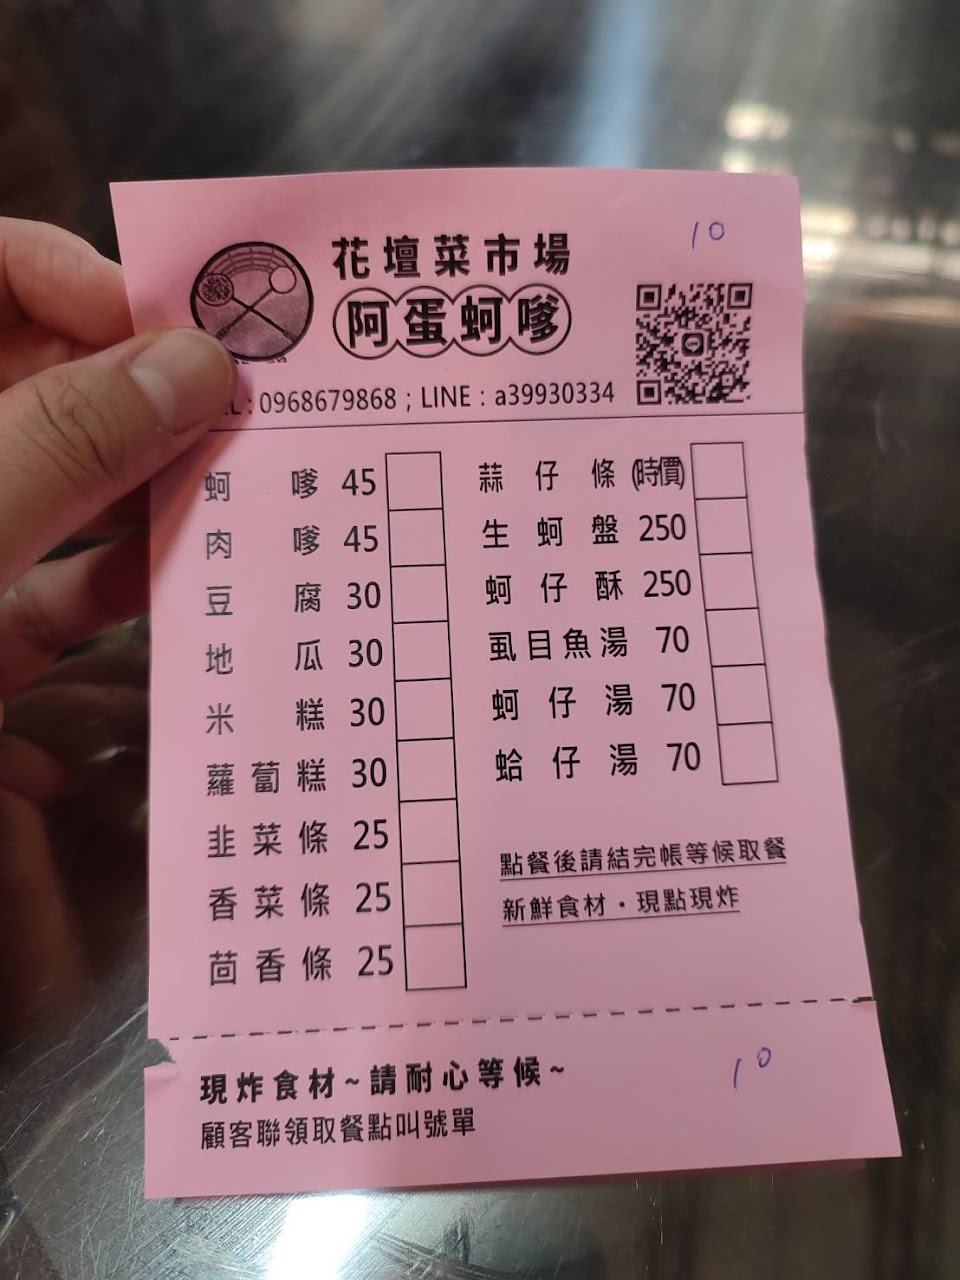 10
花壇菜市場
阿蛋蚵嗲
: 0968679868 ; LINE : a39930334
蚵嗲 45
肉嗲 45
豆腐 30
地瓜 30
米糕 30
蘿蔔糕 30
韭菜條 25
香菜條 25
茴香條 25
蒜仔條 (時價)
生蚵盤 250
蚵仔酥 250
虱目魚湯 70
蚵仔湯 70
蛤仔湯 70
點餐後請結完帳等候取餐
新鮮食材・現點現炸
現炸食材~請耐心等候~
10
顧客聯領取餐點叫號單